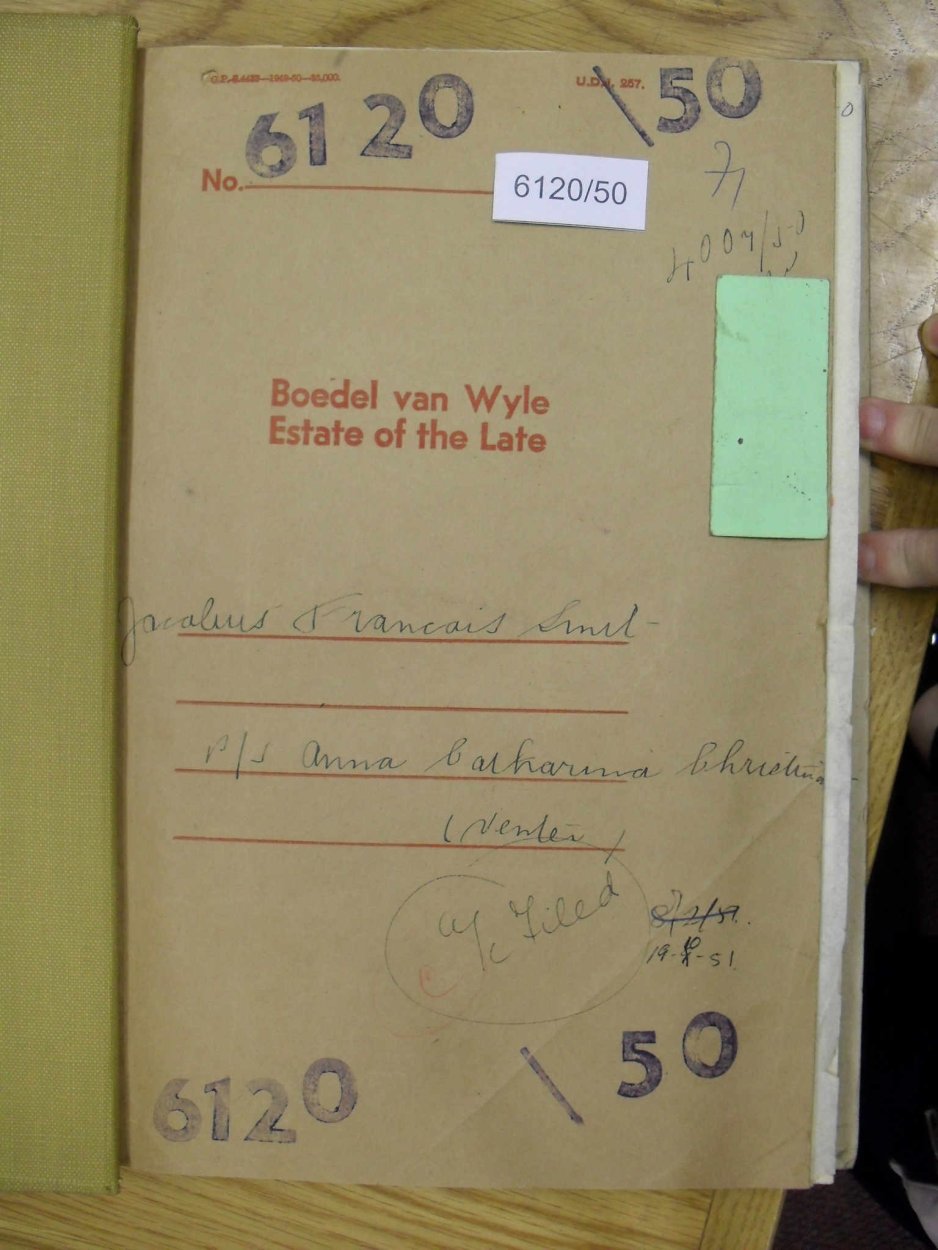 G.P.-S.4423—1949-50—35,000.
U.D.J. 257.
6120 \ 50
No.
6120/50
71
4007/50
Boedel van Wyle
Estate of the Late
Jacobus Francois Smit
P/S Anna Catharina Christina
(Venter)
a/c Filed
19-10-51.
6120 \ 50